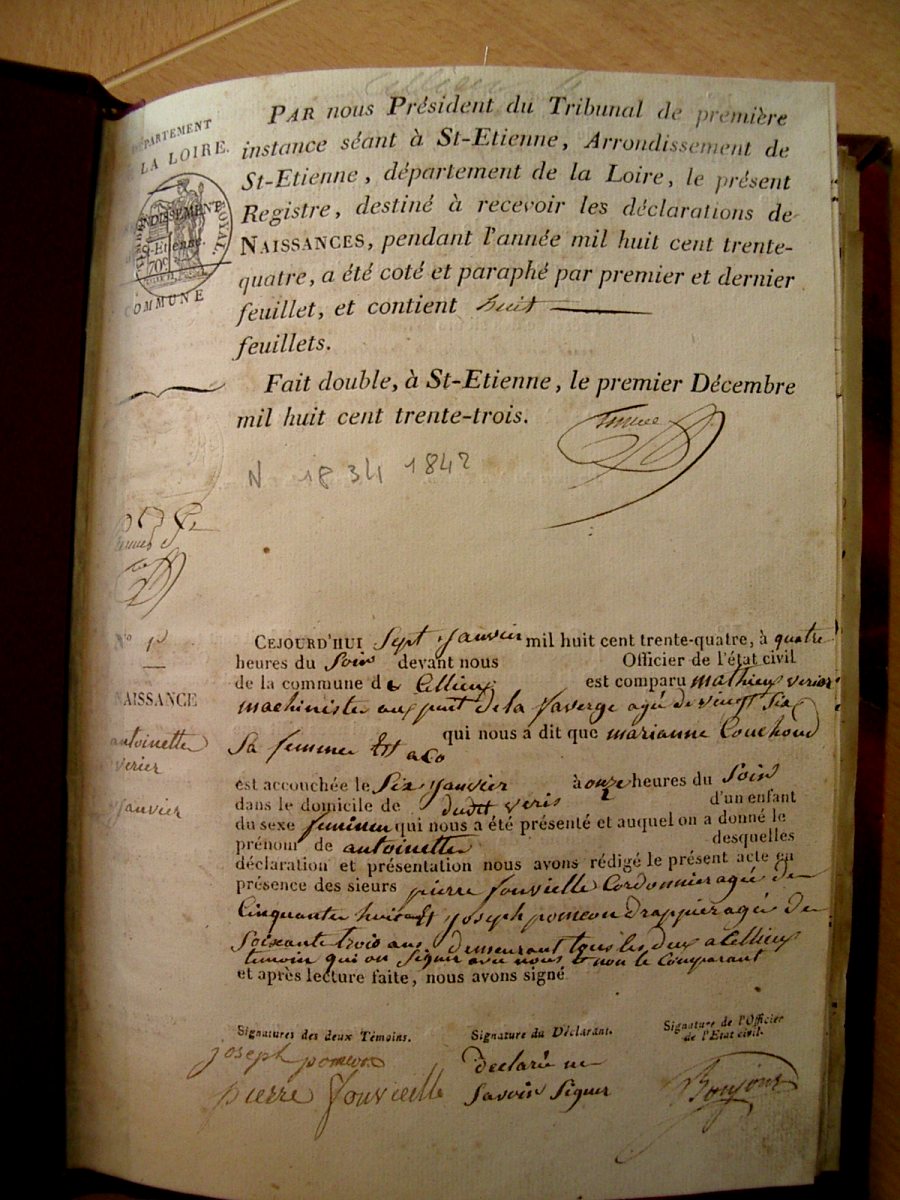 Cellieu
PAR nous Président du Tribunal de première
instance séant à St-Etienne, Arrondissement de
St-Etienne, département de la Loire, le présent
Registre, destiné à recevoir les déclarations de
NAISSANCES, pendant l'année mil huit cent trente-
quatre, a été coté et paraphé par premier et dernier
feuillet, et contient huit
feuillets.
Fait double, à St-Etienne, le premier Décembre
mil huit cent trente-trois.
DÉPARTEMENT
LA LOIRE.
ARRONDISSEMENT
St-Etienne.
COMMUNE
ROYAL.
70c
N 1834 1842
No 1er
NAISSANCE
antoinette
verier
janvier
CEJOURD'HUI Sept janvier mil huit cent trente-quatre, à quatre
heures du Soir devant nous Officier de l'état civil
de la commune de Cellieu est comparu mathieu verier
machiniste aux puit de la faverge agé de vingt Six
qui nous a dit que marianne Couchoud
Sa femme
est accouchée le Six janvier à onze heures du Soir
dans le domicile de dudit veris d'un enfant
du sexe feminin qui nous a été présenté et auquel on a donné le
prénom de antoinette desquelles
déclaration et présentation nous avons rédigé le présent acte en
présence des sieurs pierre fouvielle Cordonnier agée de
Cinquante huit et joseph pomeon drappier agée de
Soixante trois ans demeurant tous les deux a Cellieu
temoin qui on Signer avec nous non le Comparant
et après lecture faite, nous avons signé
Signatures des deux Témoins.
joseph pomeon
pierre fouvielle
Signature du Déclarant.
declaré ne
Savoir Signer
Signature de l'Officier
de l'Etat civil.
Bonjour